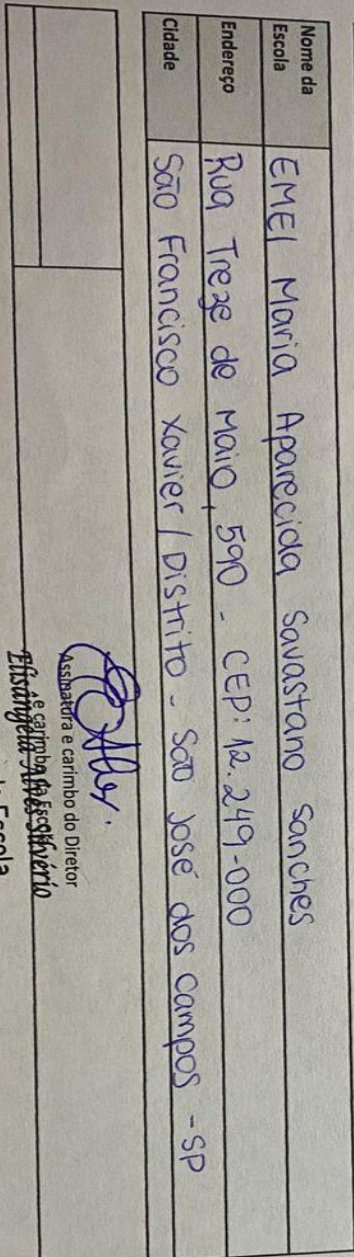 Nome da Escola EMEI Maria Aparecida Savastano Sanches
Endereço Rua Treze de Maio, 590 - CEP: 12.249-000
Cidade São Francisco Xavier / Distrito - São José dos Campos - SP
Assinatura e carimbo do Diretor
e carimbo da Escola
Elisângela Alves Silvério
Escola